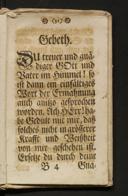 Gebeth.
DU treuer und gnä-
diger GOtt und
Vater im Himmel! so
ist dann ein einfältiges
Wort der Ermahnung
auch anitzo gesprochen
worden. Ach HErr! ha-
be Gedult mit mir, daß
solches nicht in grösserer
Krafft und Weisheit
von mir geschehen ist.
Ersetze du durch deine
B 4 Gna-